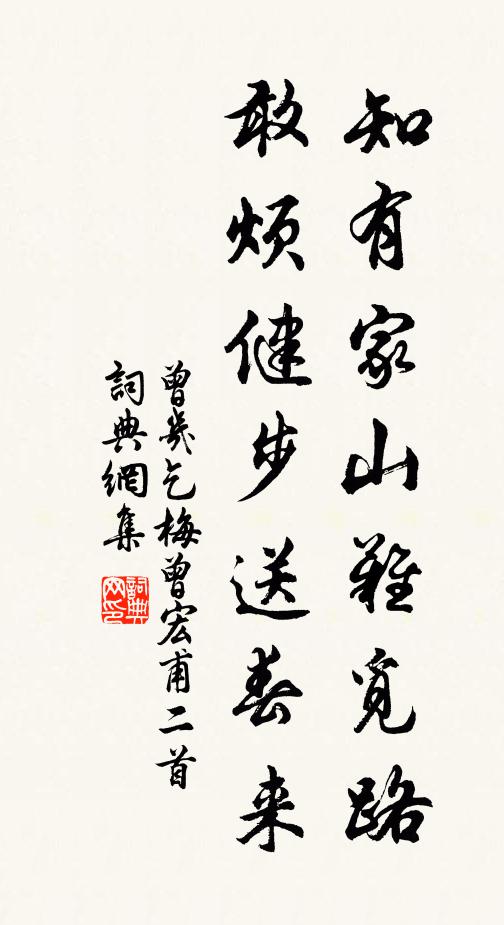 知有家山難覓路
敢烦健步送春来
曾幾乞梅曾宏甫二首
詞典網集
詞典网印